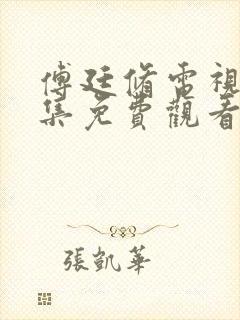 傅廷脩電視
集免費觀看
張凱華